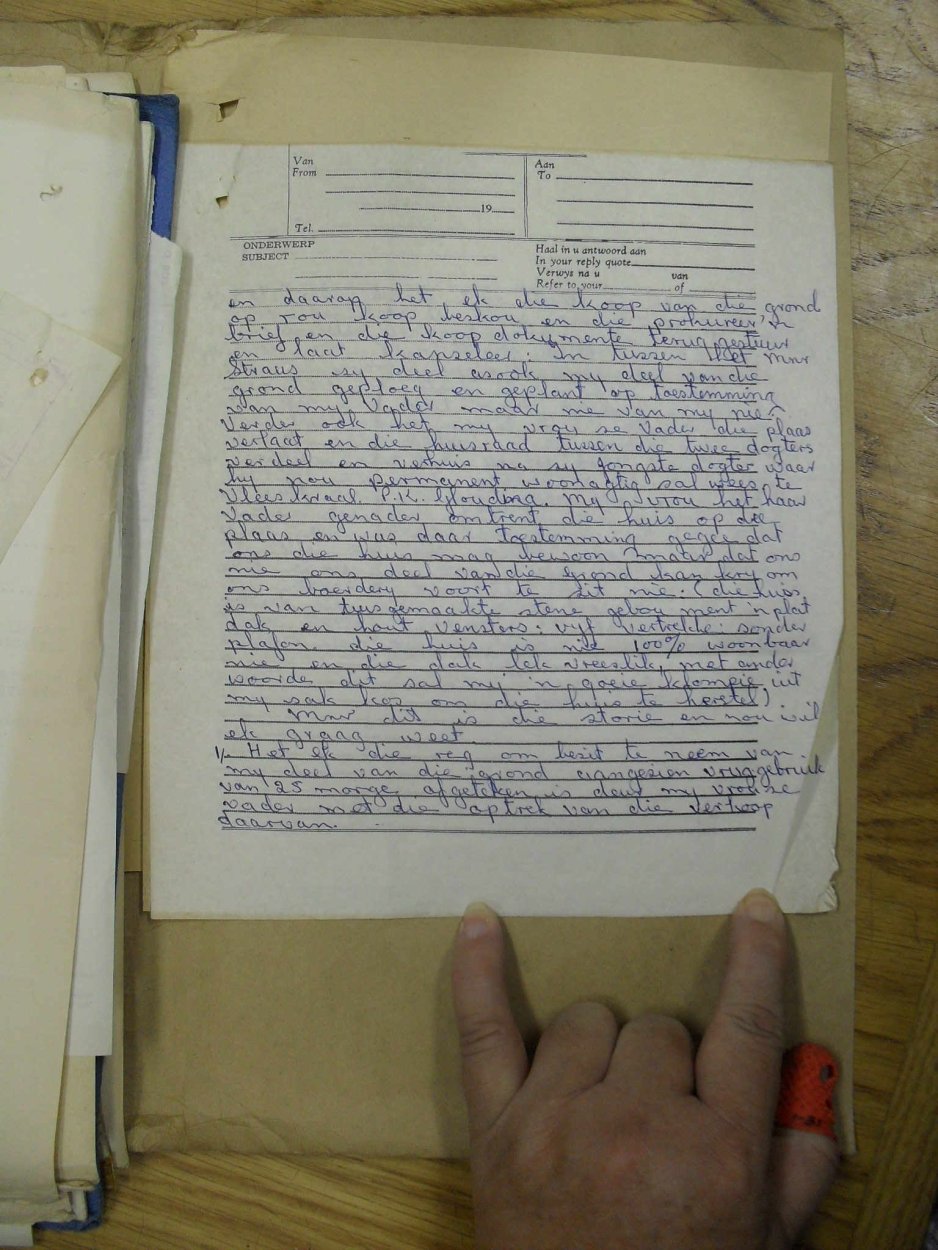 Van
From
19
Tel.
Aan
To
ONDERWERP
SUBJECT
Haal in u antwoord aan
In your reply quote
Verwys na u van
Refer to your of
en daarop het ek die koop van die grond
op rou koop beskou en die prokureur 'n
brief en die koop dokumente terug gestuur
en laat kanseleer. In tussen het mnr
Straus sy deel asook my deel van die
grond geploeg en geplant op toestemming
van my Vader maar nie van my nie.
Verder ook het my vrou se Vader die plaas
verlaat en die huisraad tussen die twee dogters
verdeel en verhuis na sy jongste dogter waar
hy nou permanent woonagtig sal wees te
Vleeskraal. P.K. Glouding. My vrou het haar
Vader genader omtrent die huis op die
plaas en was daar toestemming gegee dat
ons die huis mag bewoon maar dat ons
nie ons deel van die grond kan kry om
ons boerdery voort te sit nie. (die huis
is van tuisgemaakte stene gebou ment 'n plat
dak en hout vensters: vyf vertrekke: sonder
plafon. die huis is nie 100% woonbaar
nie en die dak lek vreeslik, met ander
woorde dit sal my 'n goeie klompie uit
my sak kos om die huis te herstel)
Mnr dit is die storie en nou wil
ek graag weet
1/. Het ek die reg om besit te neem van
my deel van die grond aangesien vruggebruik
van 25 morge afgeteken is deur my vrou se
vader met die optrek van die verkoop
daarvan.